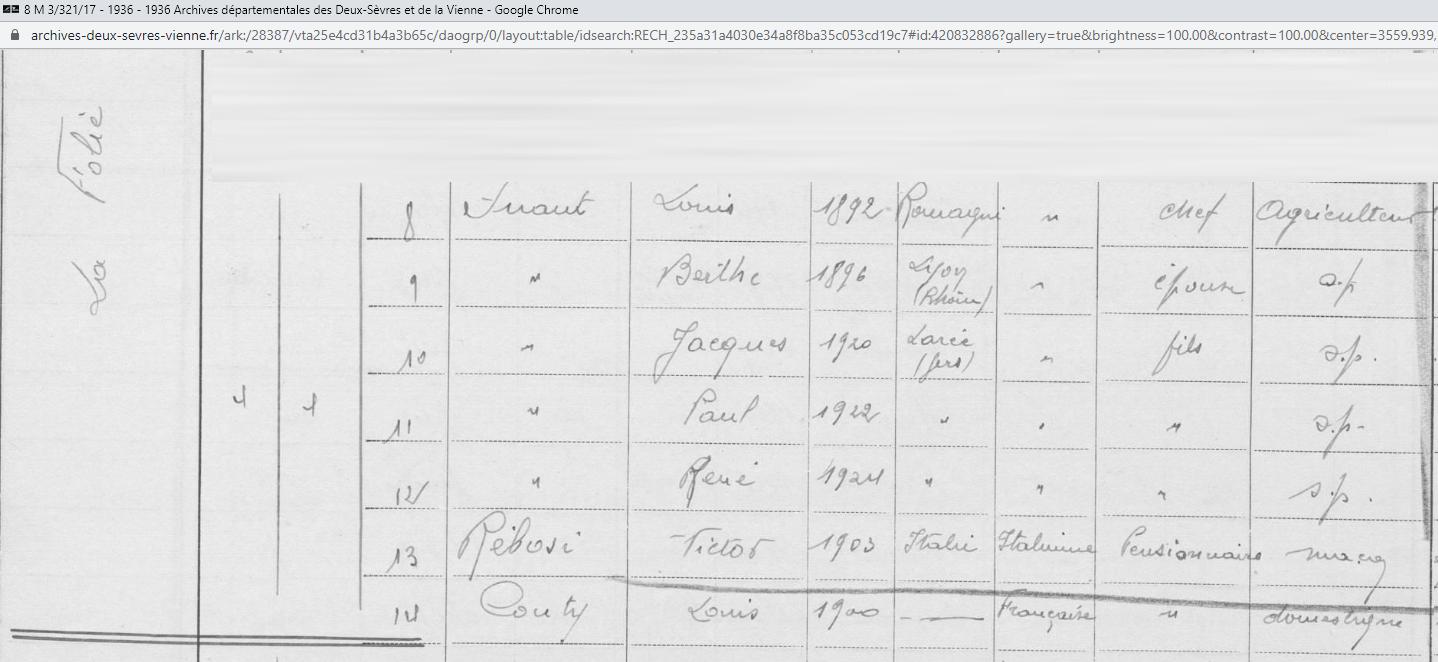 8 M 3/321/17 - 1936 - 1936 Archives départementales des Deux-Sèvres et de la Vienne - Google Chrome
archives-deux-sevres-vienne.fr/ark:/28387/vta25e4cd31b4a3b65c/daogrp/0/layout:table/idsearch:RECH_235a31a4030e34a8f8ba35c053cd19c7#id:420832886?gallery=true&brightness=100.00&contrast=100.00&center=3559.939,
La Folie
8 Louis 1892 Romagni " chef Agriculteur
9 " Berthe 1896 Lyon (Rhône) " épouse s.p
10 " Jacques 1920 Larée (Gers) " fils s.p.
4 1 11 " Paul 1922 " " " s.p.
12 " René 1924 " " " s.p.
13 Rébosi Victor 1903 Italie Italienne Pensionnaire maçon
14 Couty Louis 1900 — Française " domestique